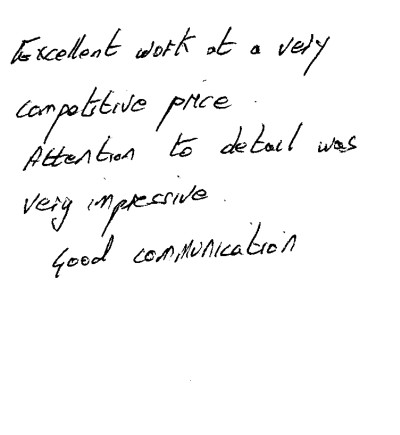 Excellent work at a very
competitive price.
Attention to detail was
very impressive.
Good communication